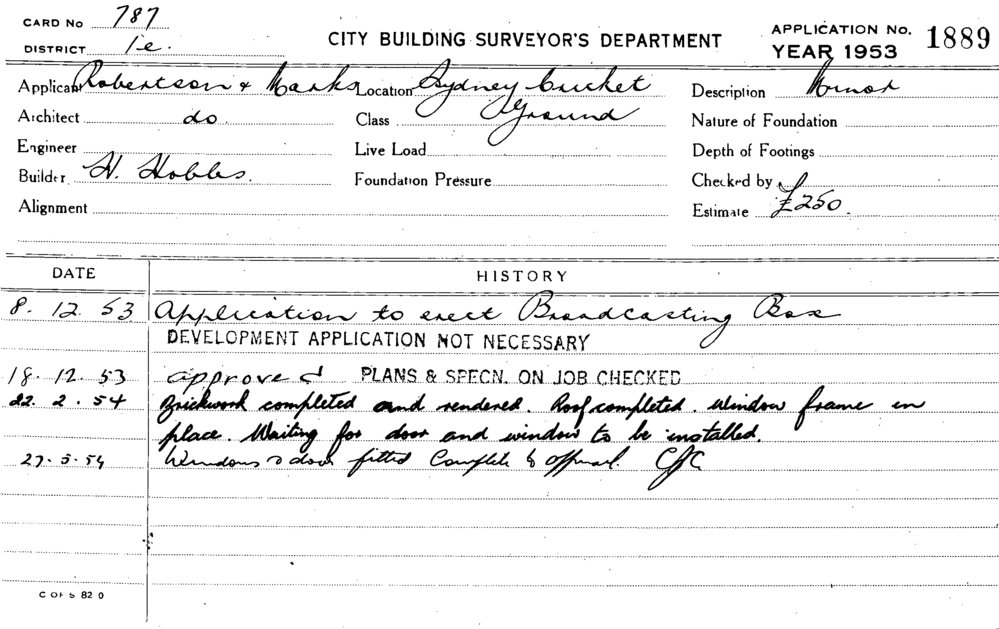 CARD No 787
DISTRICT 1e.
CITY BUILDING SURVEYOR'S DEPARTMENT
APPLICATION No. 1889
YEAR 1953
Applicant Robertson & Marks
Location Sydney Cricket Ground
Description Minor
Architect do
Class
Nature of Foundation
Engineer
Live Load
Depth of Footings
Builder H. Hobbs.
Foundation Pressure
Checked by
Alignment
Estimate £250.
DATE HISTORY
8. 12. 53 Application to erect Broadcasting Box
DEVELOPMENT APPLICATION NOT NECESSARY
18. 12. 53 approved PLANS & SPECN. ON JOB CHECKED
22. 2. 54 Brickwork completed and rendered. Roof completed. Window frame in
place. Waiting for door and window to be installed.
27. 5. 54 Windows & door fitted Complete &
C OF S 82 0